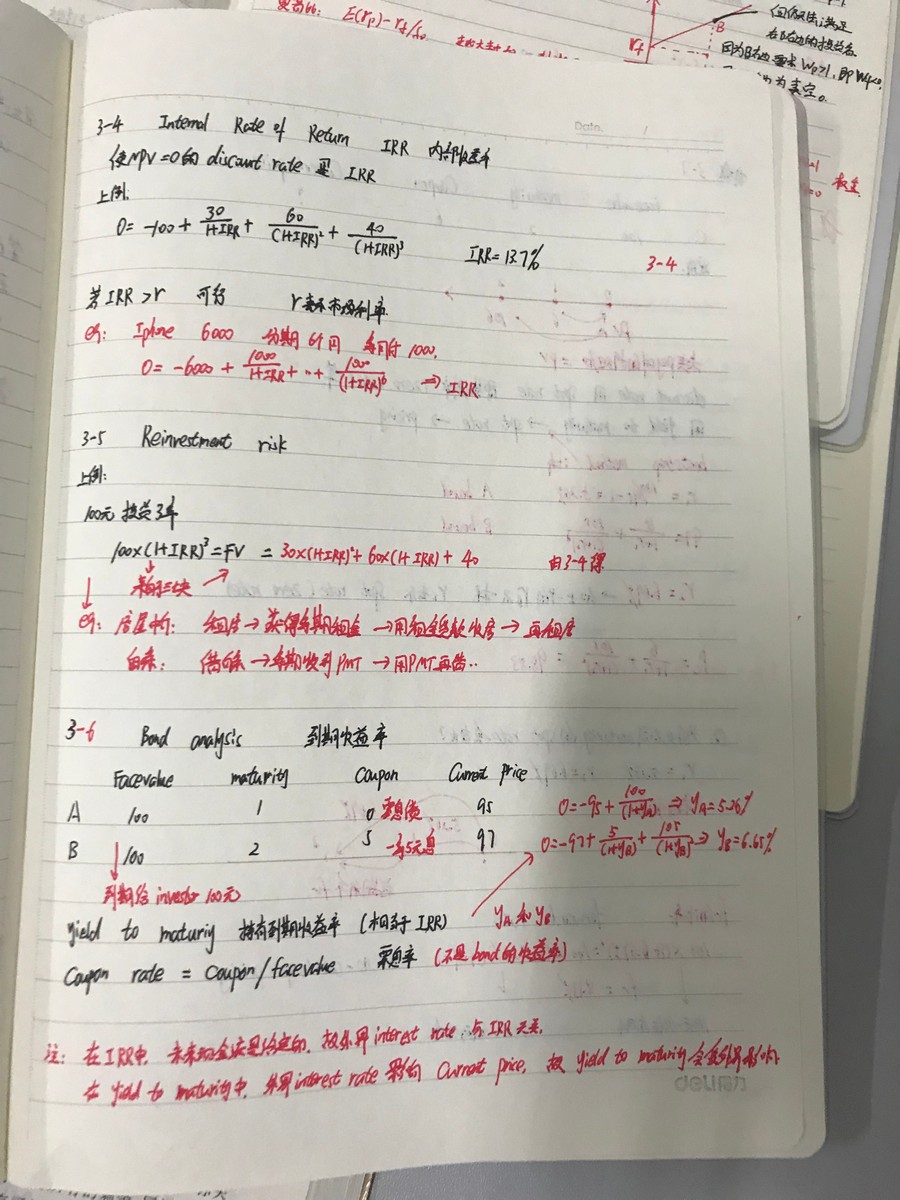 E(rp)-rf/σp
rf
B
因为B右边要求 Wp>1, 即 Wf<0
Date.
3-4 Internal Rate of Return IRR 内部收益率
使NPV=0的 discount rate 是 IRR
上例:
0= -100 + 30/(1+IRR) + 60/(1+IRR)² + 40/(1+IRR)³ IRR=13.7% 3-4
若 IRR >r 可行 r表示市场利率.
eg: Iphone 6000 分期6个月 每月付 1000.
0= -6000 + 1000/(1+IRR) + ··· + 1000/(1+IRR)⁶ ⇒ IRR
3-5 Reinvestment risk
上例:
100元 投资3年
100×(1+IRR)³=FV = 30×(1+IRR)²+ 60×(1+IRR) + 40 由3-4得
eg: 房屋中介: 租房→获得每期租金→用租金贷款收房→再租房
白条: 借白条→每期收到PMT→用PMT再借··
3-6 Bond analysis 到期收益率
Facevalue maturity Coupon Current price
A 100 1 0 零息债 95 0=-95+100/(1+yA) ⇒ yA=5.26%
B 100 2 5 一年5元息 97 0=-97+5/(1+yB)+105/(1+yB)² ⇒ yB=6.65%
到期给 investor 100元
yield to maturiy 持有到期收益率 (相当于 IRR) yA 和 yB
Coupon rate = Coupon/facevalue 票息率 (不是bond的收益率)
注: 在IRR中, 未来现金流是给定的, 故外界interest rate 与 IRR 无关.
在 yield to maturity中, 外界interest rate 影响 Current price, 故 yield to maturity 会受外界影响
deli得力